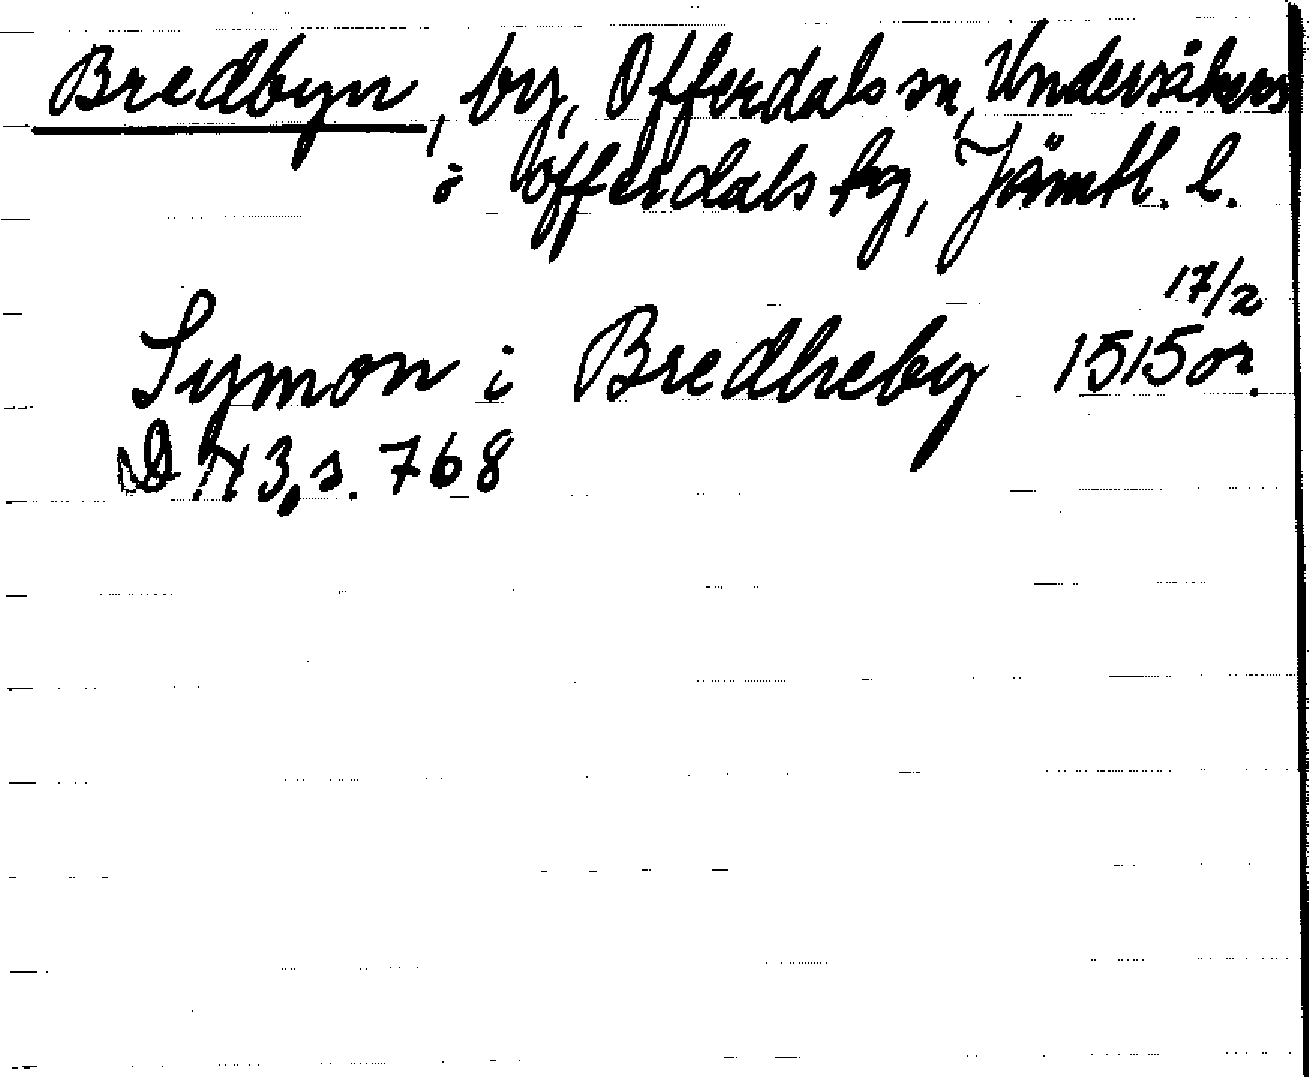 Bredbyn, by, Offerdals sn, Undersåkers
o Offerdals tg, Jämtl. l.
17/2
Symon i Bredheby 1515 or.
DN 3, s. 768